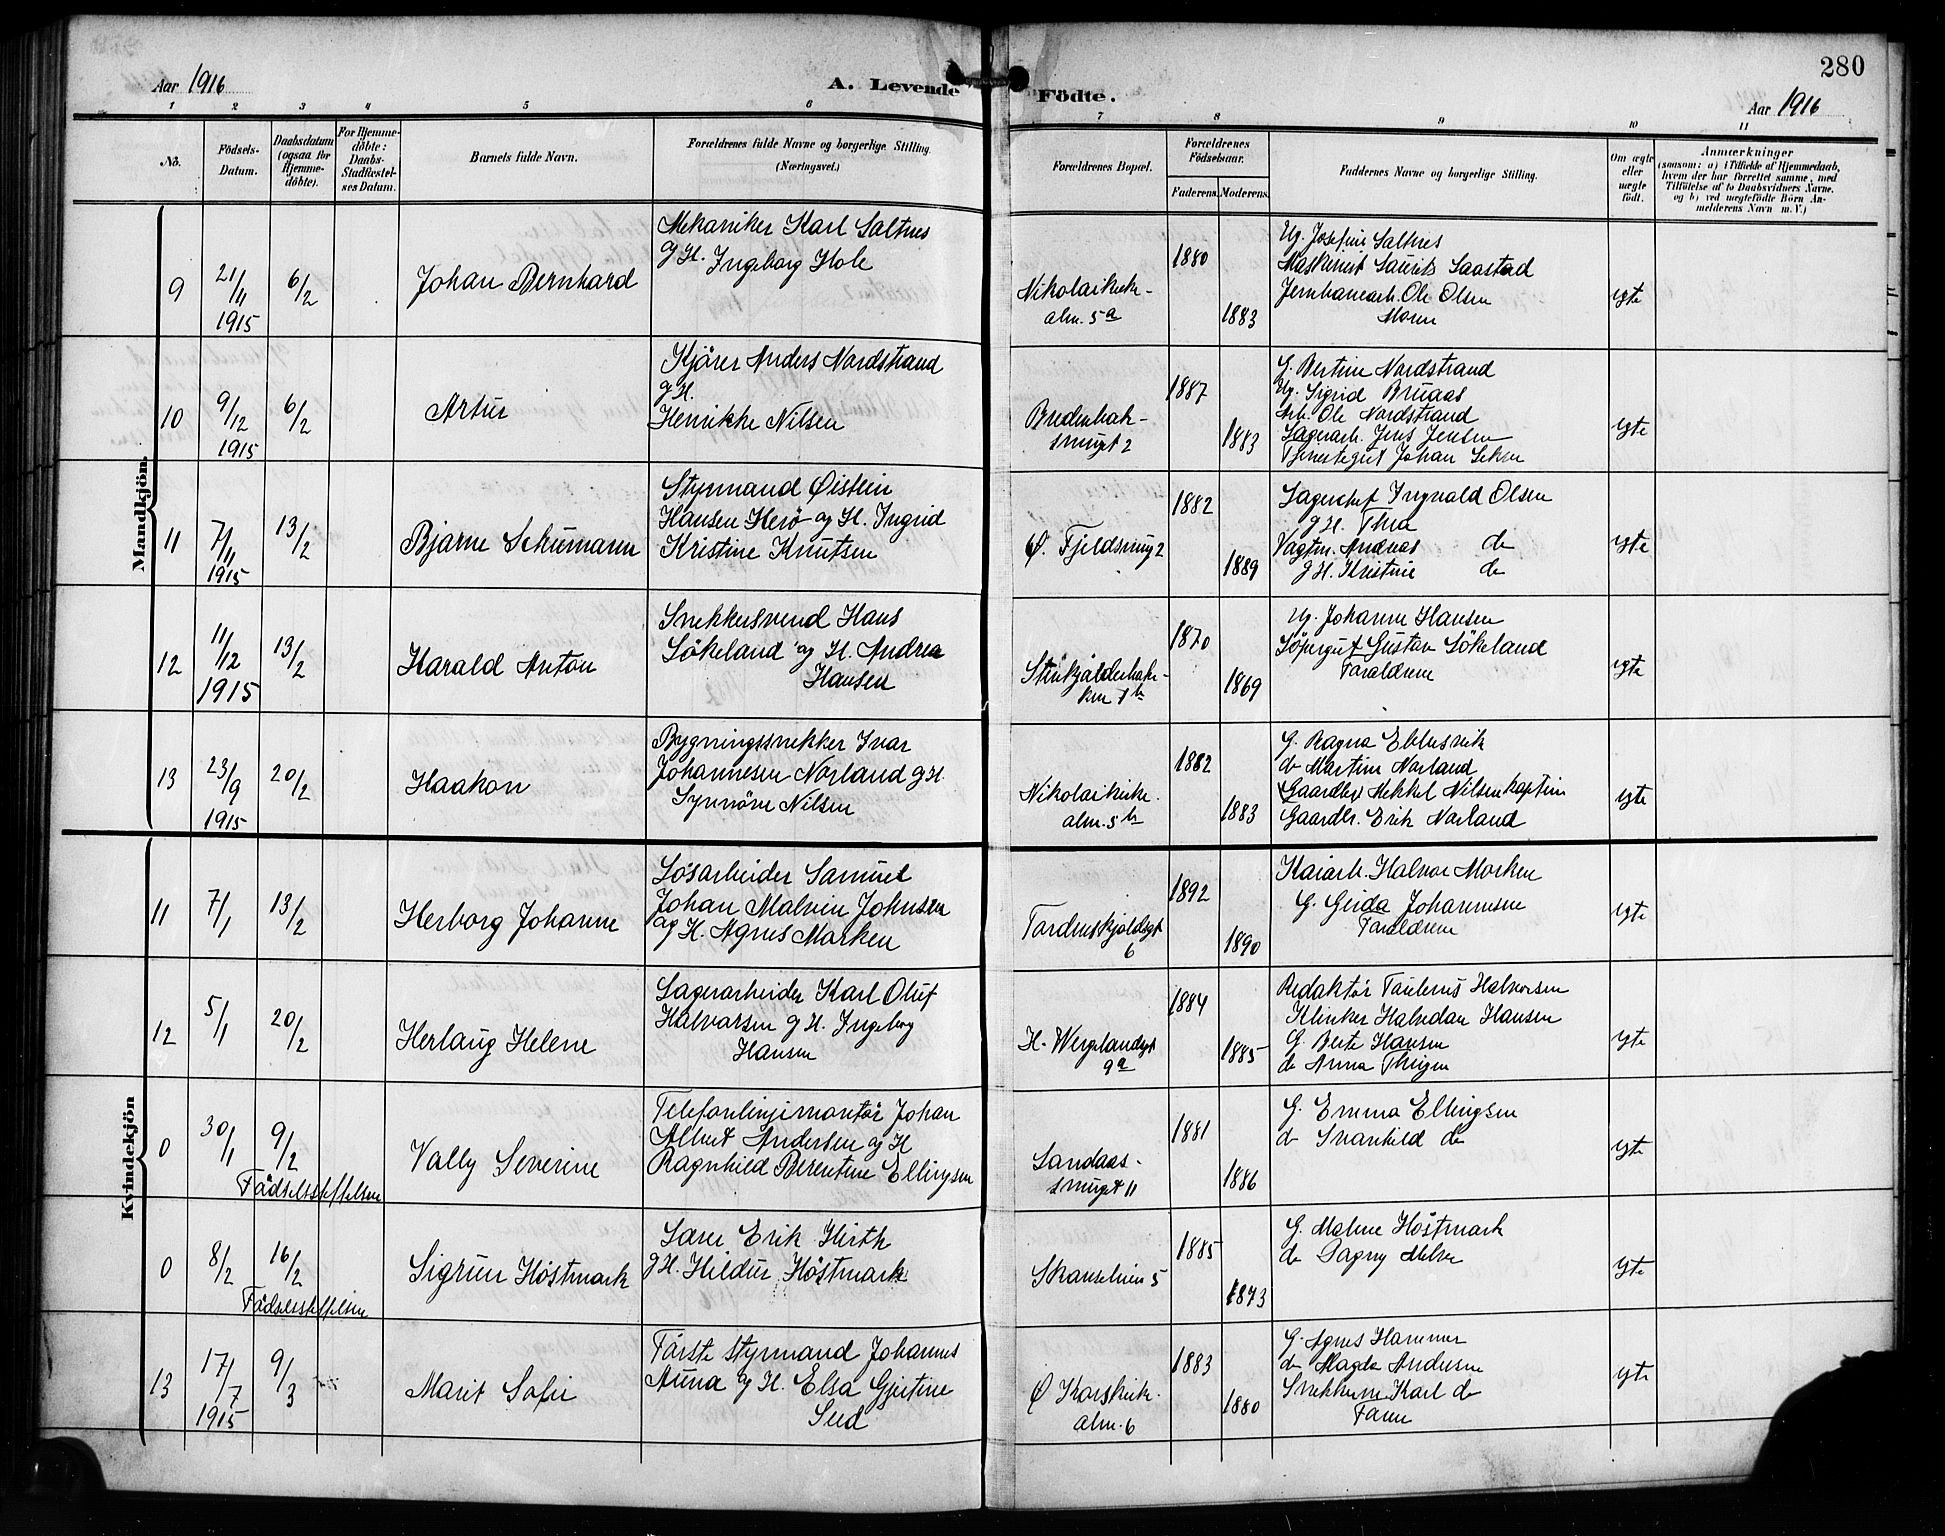 280
Aar 1916
A. Levende
Födte.
Aar 1916
1 2 3 4 5 6 7 8 9 10 11
No.
Födsels-
Datum.
Daabsdatum
(ogsaa for
Hjemme-
döbte).
For Hjemme-
döbte:
Daabs-
Stadfæstel-
ses Datum.
Barnets fulde Navn.
Forældrenes fulde Navne og borgerlige Stilling.
(Næringsvei.)
Forældrenes Bopæl.
Forældrenes
Födselsaar.
Faderens.
Moderens.
Faddernes Navne og borgerlige Stilling.
Om ægte
eller
uægte
født.
Anmærkninger
(saasom: a) i Tilfælde af Hjemmedaab,
hvem der har forrettet samme, med
Tilföielse af to Daabsvidners Navne.
og b) ved uægtefödte Börn An-
melderens Navn m. V.)
Mandkjön.
9
21/11
1915
6/2
Johan Bernhard
Mekaniker Karl Saltnes
g H. Ingeborg Hole
Nikolaikirke-
alm. 5a
1880
1883
Ug. Josefine Saltnes
Maskinist Laurits Saastad
Jernbanearb. Ole Olsen
Moren
egte
10
9/12
1915
6/2
Artur
Kjører Anders Nordstrand
g H.
Henrikke Nilsen
Bredenbak-
smuget 2
1887
1883
G. Bertine Nordstrand
Ug. Sigrid Bruaas
Arb. Ole Nordstrand
Lagerarb. Jens Jensen
Tjenestegut Johan
egte
11
7/11
1915
13/2
Bjarne Schumann
Styrmand Øistein
Hansen Herö og H. Ingrid
Kristine Knutsen
Ø. Fjeldsmug 2
1882
1889
Lagerchef Ingvald Olsen
g H. Thea
Vagtm. Andreas do
g H. Kristine do
egte
12
11/12
1915
13/2
Harald Anton
Snekkersvend Hans
Sökeland og H. Andrea
Hansen
Stenkjælderbak-
ken 1b
1870
1869
Ug. Johanne Hansen
Løpergut Gustav Sökeland
Forældrene
egte
13
23/9
1915
20/2
Haakon
Bygningssnekker Ivar
Johannesen Norland g H.
Synnöve Nilsen
Nikolaikirke.
alm. 5b
1882
1883
G. Ragna Ebbesvik
do Martine Norland
Gaardbr Mekkel Nilsen kaptein
Gaardbr. Erik Norland
egte
Kvindekjön
11
7/1
13/2
Herborg Johanne
Løsarbeider Samuel
Johan Malvin Johnsen
og H. Agnes Morken
Tordenskjoldsgt
6
1892
1890
Kaiarb. Halvor Morken
G. Gerda Johannesen
Forældrene
egte
12
5/1
20/2
Herlaug Helene
Lagerarbeider Karl Oluf
Halvorsen g H. Ingeborg
Hansen
H. Wergelandsgt
9a
1884
1885
Redaktør Paulenus Halvorsen
Klinker Halvdan Hansen
G. Berte Hansen
do Anna
egte
0
30/1
9/2
Fødselsstiftelsen
Vally Severine
Telefonlinjemontør Johan
Albert Andersen og H
Ragnhild Berentine Ellingsen
Sandaas-
smuget 11
1881
1886
G. Emma Ellingsen
do Svanhild do
egte
0
8/2
16/2
Fødselsstiftelsen
Sigrun Høstmark
Larer Erik Hirth
g H. Hildur Høstmark
Skanselien 5
1885
1873
G. Malene Høstmark
do Dagny
egte
13
17/7
1915
9/3
Marit Sofie
Første styrmand Johannes
Auna og H. Elsa Gjertine
Lied
Ø Korskirke.
alm. 6
1883
1880
G. Agnes Hammer
do Magda Andresen
Snekkerm Karl do
Faren
egte